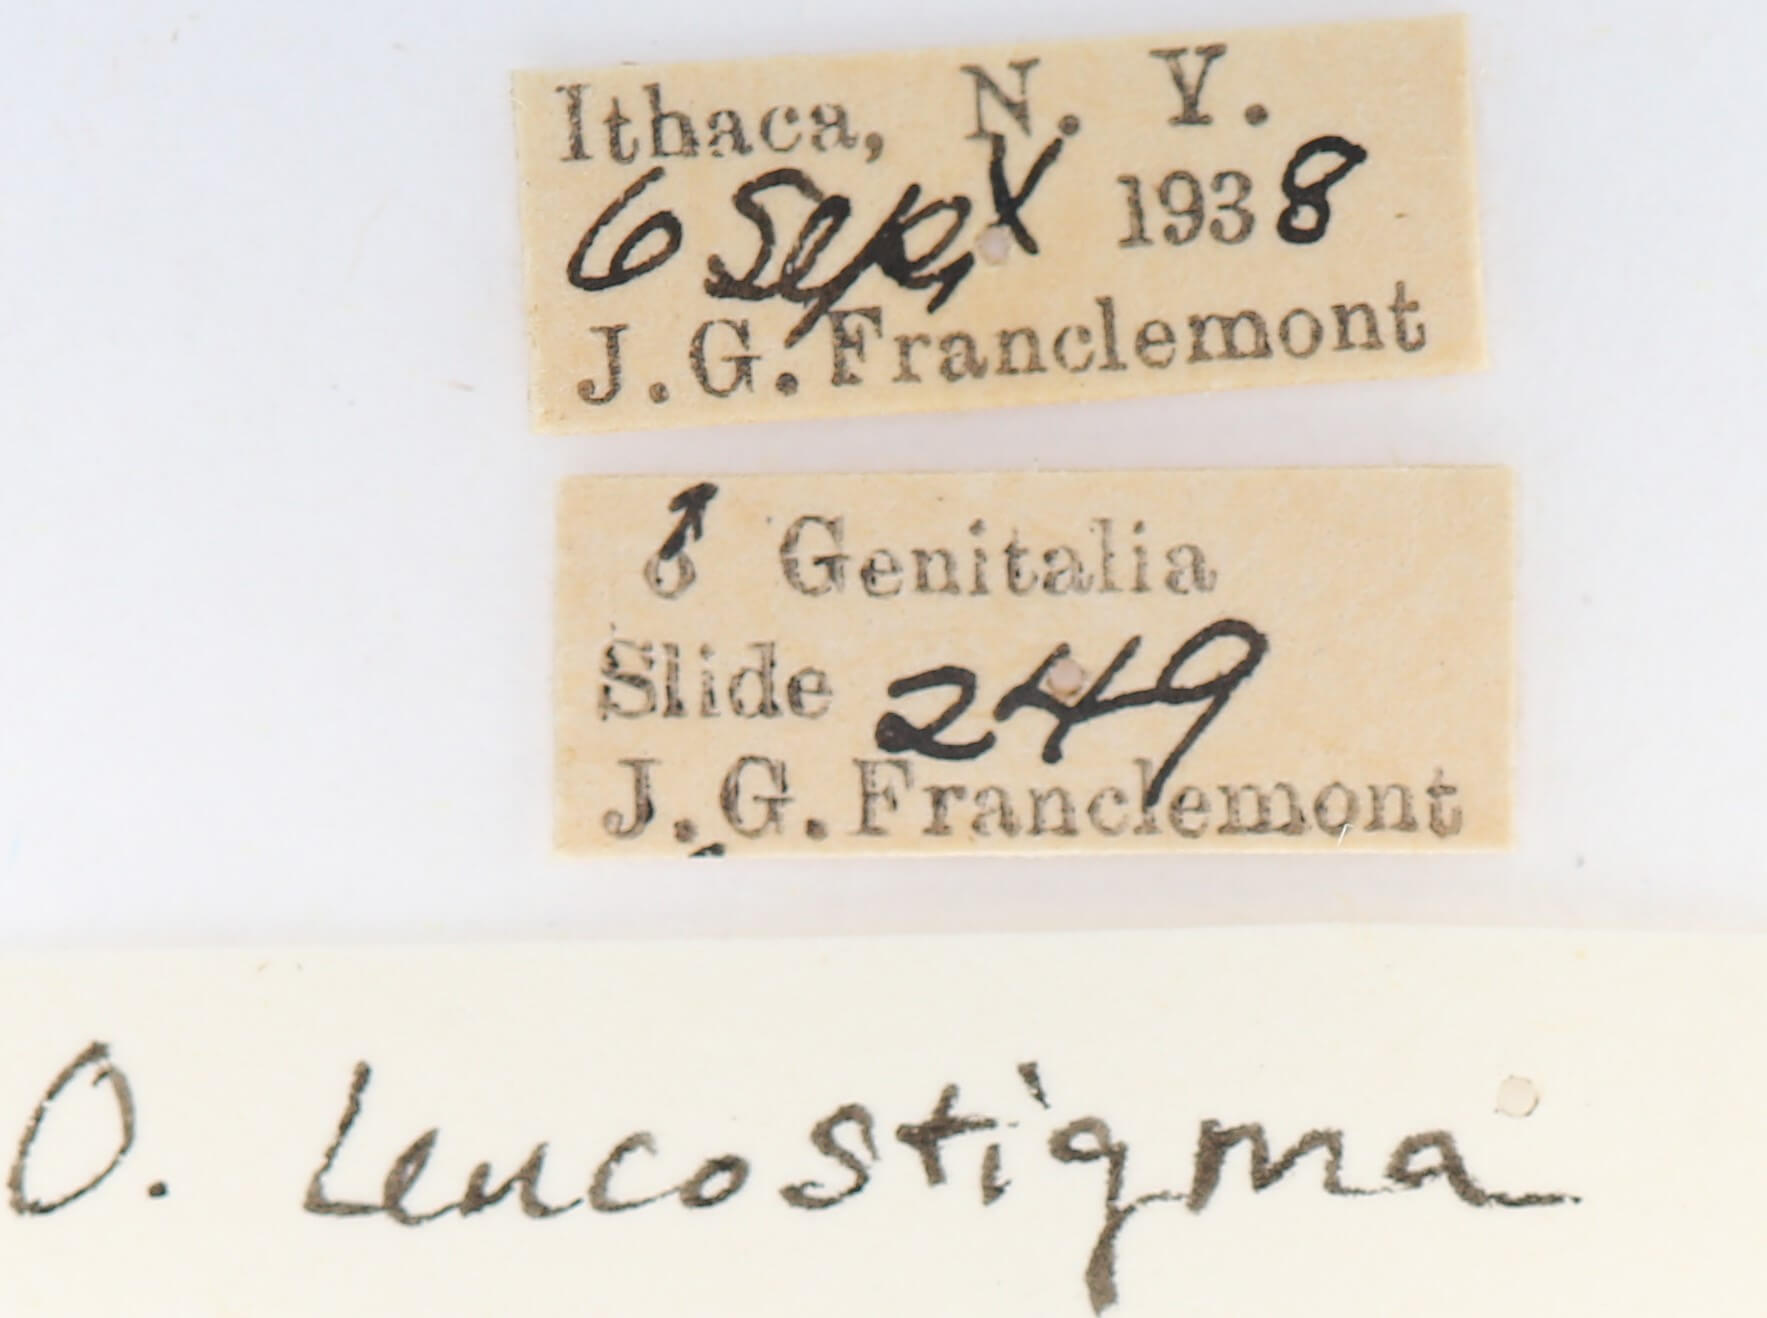 Ithaca, N. Y.
6 Sept 1938
J. G. Franclemont
♂ Genitalia
Slide 249
J. G. Franclemont
O. leucostigma